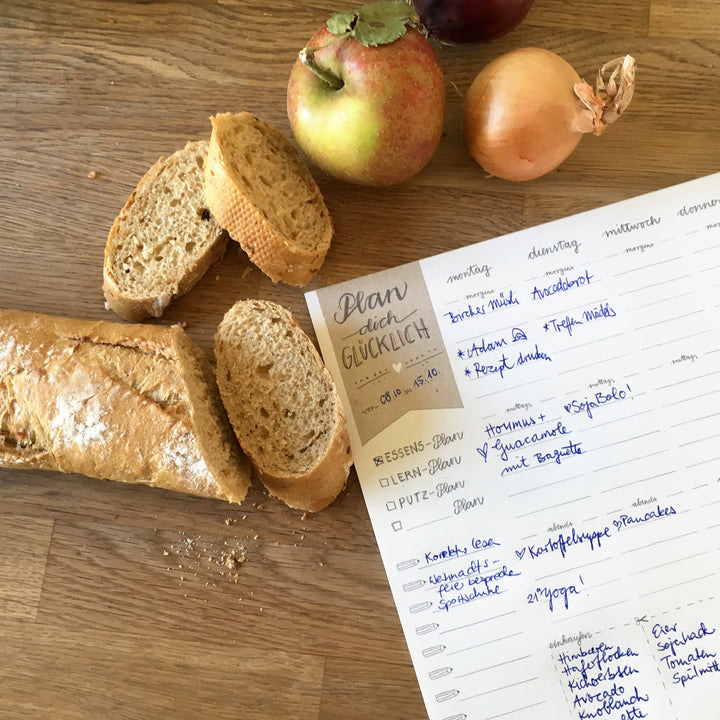 montag
dienstag
mittwoch
donner
Plan
dich
GLÜCKLICH
von 08.10 bis 15.10.
morgens
morgens
morgens
morgens
Bircher Müsli
Avocadobrot
*Adam
*Treffen Mädels
*Rezept drucken
mittags
mittags
mittags
Houmus +
♥SojaBolo!
♥Guacamole
mit Baguette
☒ESSENS-Plan
☐LERN-Plan
☐PUTZ-Plan
☐ Plan
abends
abends
abends
♥Kartoffelsuppe
♥Pancakes
21h Yoga!
Korrektur lesen
Weihnachts-
feier besprechen
Sportschuhe
einkaufen
Himbeeren
Haferflocken
Kichererbsen
Avocado
Knoblauch
Eier
Sojahack
Tomaten
Spülmitt